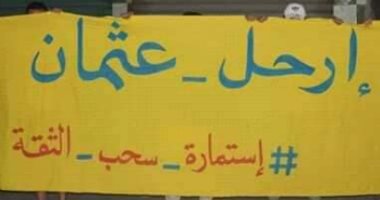 إرحل_عثمان
#إستمارة_سحب_الثقة